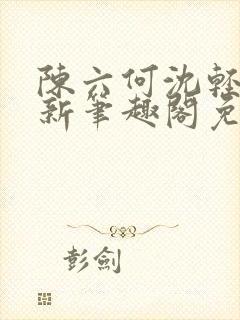 陳六何沈輕
新筆趣閣免
彭劍